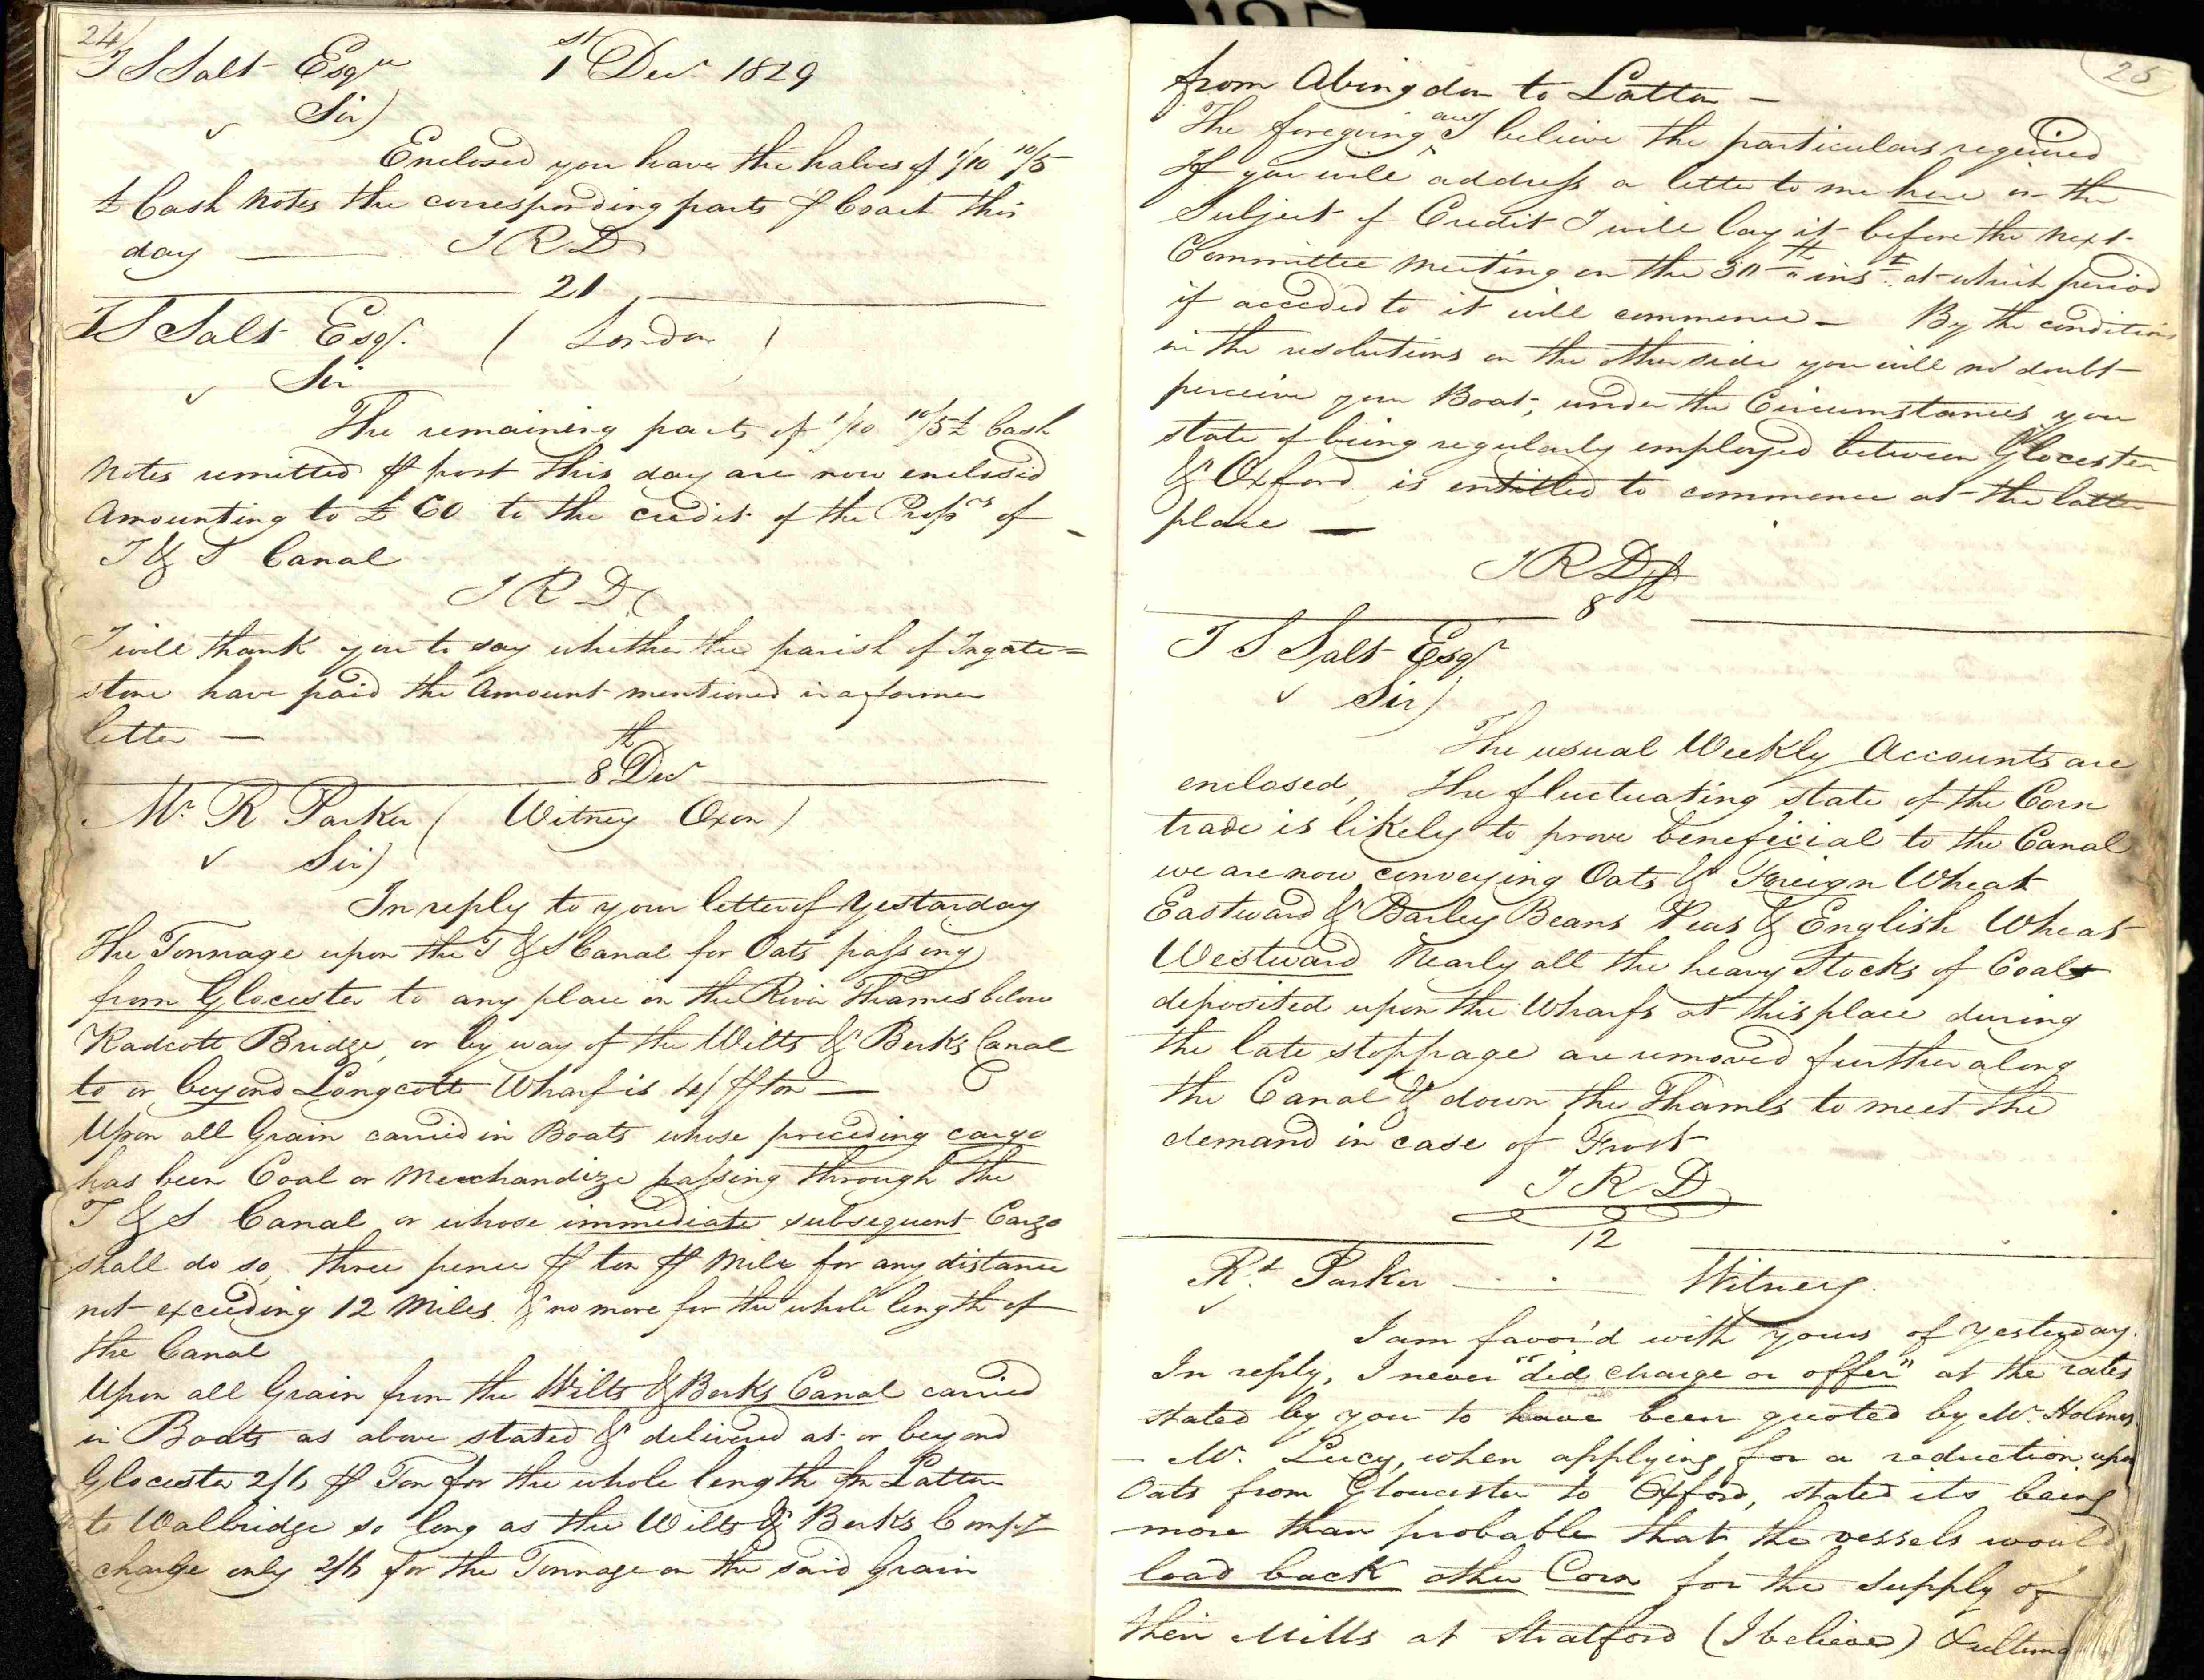 24
T S Salt Esqr 1st Decr 1829
Sir)
Enclosed you have the halves of 1/10 10/5
£ Cash Notes the corresponding parts ⅌ Coach this
day — I R D
21
T S Salt Esqr. ( London )
Sir
The remaining parts of 1/10 10/5 £ Cash
Notes remitted ⅌ post this day are now enclosed
Amounting to £60 to the credit of the Proprs of
T & S Canal
I R D
I will thank you to say whether the parish of Ingate=
stone have paid the Amount mentioned in a former
letter —
8th Decr
Mr. R Parker ( Witney Oxon )
Sir)
In reply to your letter of Yestarday
The Tonnage upon the T & S Canal for Oats passing
from Glocester to any place on the River Thames below
Radcott Bridge, or by way of the Wilts & Berks Canal
to or beyond Longcott Wharf is 4/ ⅌ ton —
Upon all Grain carried in Boats whose preceding cargo
has been Coal or Merchandize passing through the
T & S Canal or whose immediate subsequent Cargo
shall do so, three pence ⅌ ton ⅌ Mile for any distance
not exceeding 12 Miles & no more for the whole length of
the Canal
Upon all Grain from the Wilts & Berks Canal carried
in Boats as above stated & delivered at or beyond
Glocester 2/6 ⅌ Ton for the whole length fm Latton
to Walbridge so long as the Wilts & Berks Compy
charge only 2/6 for the Tonnage on the said Grain
25
from Abingdon to Latton —
The foregoing are I believe the particulars required
If you will address a letter to me here on the
Subject of Credit I will lay it before the next
Committee Meeting on the 30th inst. at which period
if acceded to it will commence — By the conditions
in the resolutions on the other side you will no doubt
perceive your Boat, under the Circumstances you
state of being regularly employed between Glocester
& Oxford, is entitled to commence at the latter
place —
I R D
8th
T S Salt Esqr
Sir)
The usual Weekly Accounts are
enclosed, the fluctuating state of the Corn
trade is likely to prove beneficial to the Canal
we are now conveying Oats & Foreign Wheat
Eastward & Barley Beans Peas & English Wheat
Westward Nearly all the heavy Stocks of Coal
deposited upon the Wharfs at this place during
the late stoppage are removed further along
the Canal & down the Thames to meet the
demand in case of Frost
I R D
12
Rt. Parker — Witney.
I am favor'd with yours of yesterday.
In reply, I never "did charge or offer" at the rates
stated by you to have been quoted by Mr. Holmes
— Mr. Lucy, when applying for a reduction upon
Oats from Gloucester to Oxford, stated its being
more than probable that the vessels would
load back other Corn for the supply of
their Mills at Stratford (I believe)